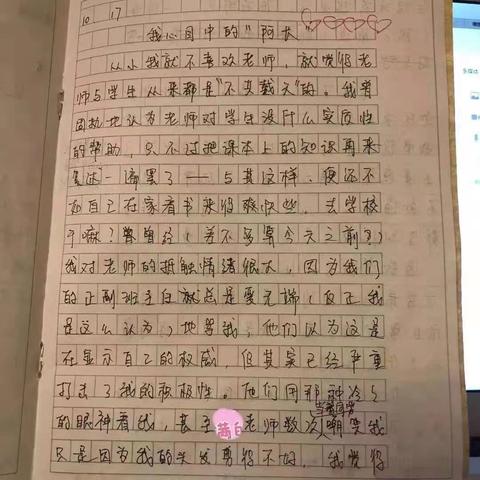 10 17
我心目中的“阿长”
从小我就不喜欢老师，就觉得老
师与学生从来都是“不共戴天”的。我曾
固执地认为老师对学生没什么实质性
的帮助，只不过把课本上的知识再来
复述一遍罢了——与其这样，便还不
如自己在家看书来得爽快些，去学校
干嘛？曾曾经（差不多算今天之前？）
我对老师的抵触情绪很大，因为我们
的正副班主任总是爱无端（反正我
是这么认为）地骂我，他们以为这是
在显示自己的权威，但其实已经严重
打击了我的积极性。他们用那种冷冷
的眼神看我，甚至 老师数次当着同学嘲笑我
只是因为我的头发剪得不好，我觉得